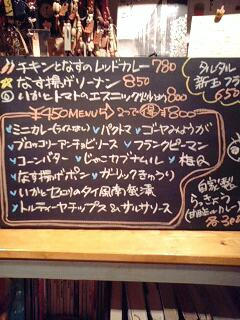 チキンとなすのレッドカレー 780
なす揚げソーナン 850
いかとトマトのエスニック炒め 800
¥450MENU 2つで 得 ¥800
ミニカレー パクトマ ゴヤみょうが
ブロッコリーアンチョビソース フランクピーマン
コーンバター じゃこカブナムル 梅良
なす揚げポン ガーリックきゅうり
いかとセロリのタイ風南蛮漬
トルティーヤチップス&サルサソース
タルタル
新玉フラ
650
自家製
らっきょう